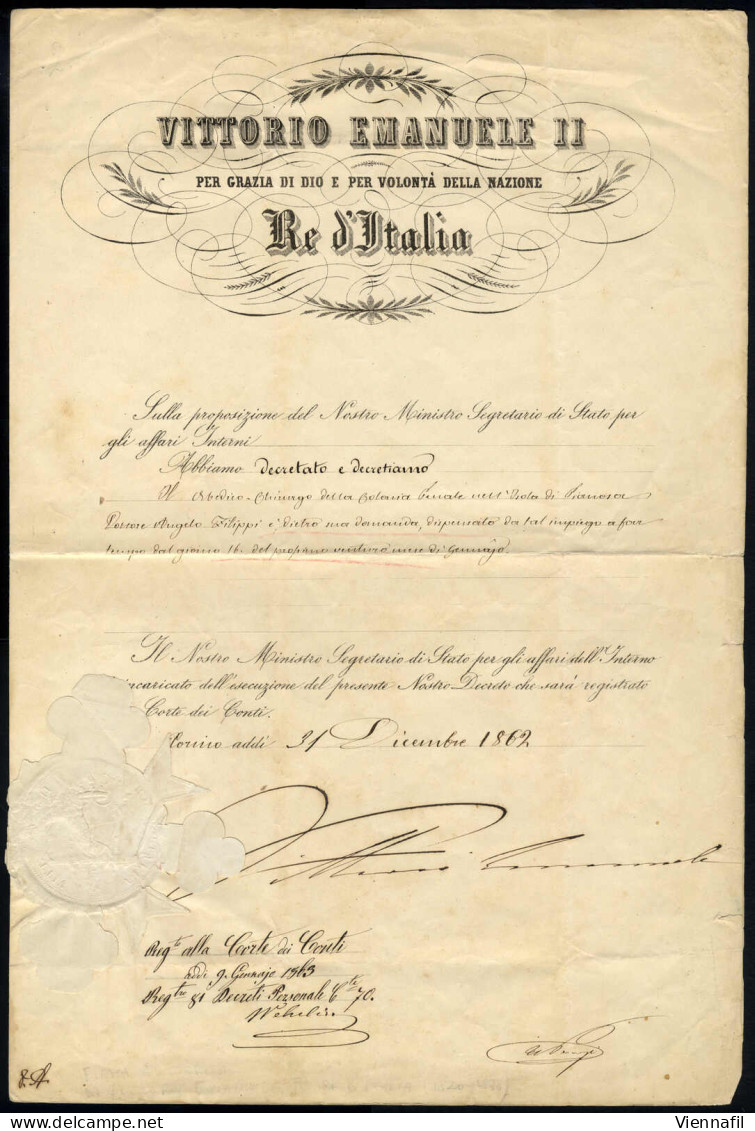 VITTORIO EMANUELE II
PER GRAZIA DI DIO E PER VOLONTÀ DELLA NAZIONE
Re d'Italia
Sulla proposizione del Nostro Ministro Segretario di Stato per
gli affari Interni
Abbiamo decretato e decretiamo
Il Medico-Chirurgo della Colonia Penale nell'Isola di Pianosa
Dottore Angelo Filippi è, dietro sua domanda, dispensato da tal impiego a far
tempo dal giorno 16 del prossimo venturo mese di Gennajo.
Il Nostro Ministro Segretario di Stato per gli affari dell'Interno
incaricato dell'esecuzione del presente Nostro Decreto che sarà registrato
Corte dei Conti.
Torino addì 31 Dicembre 1862
Vittorio Emanuele
Regto alla Corte dei Conti
addì 9. Gennajo 1863
Regtro 81 Decreti Personale Cte 70.
Viennafil